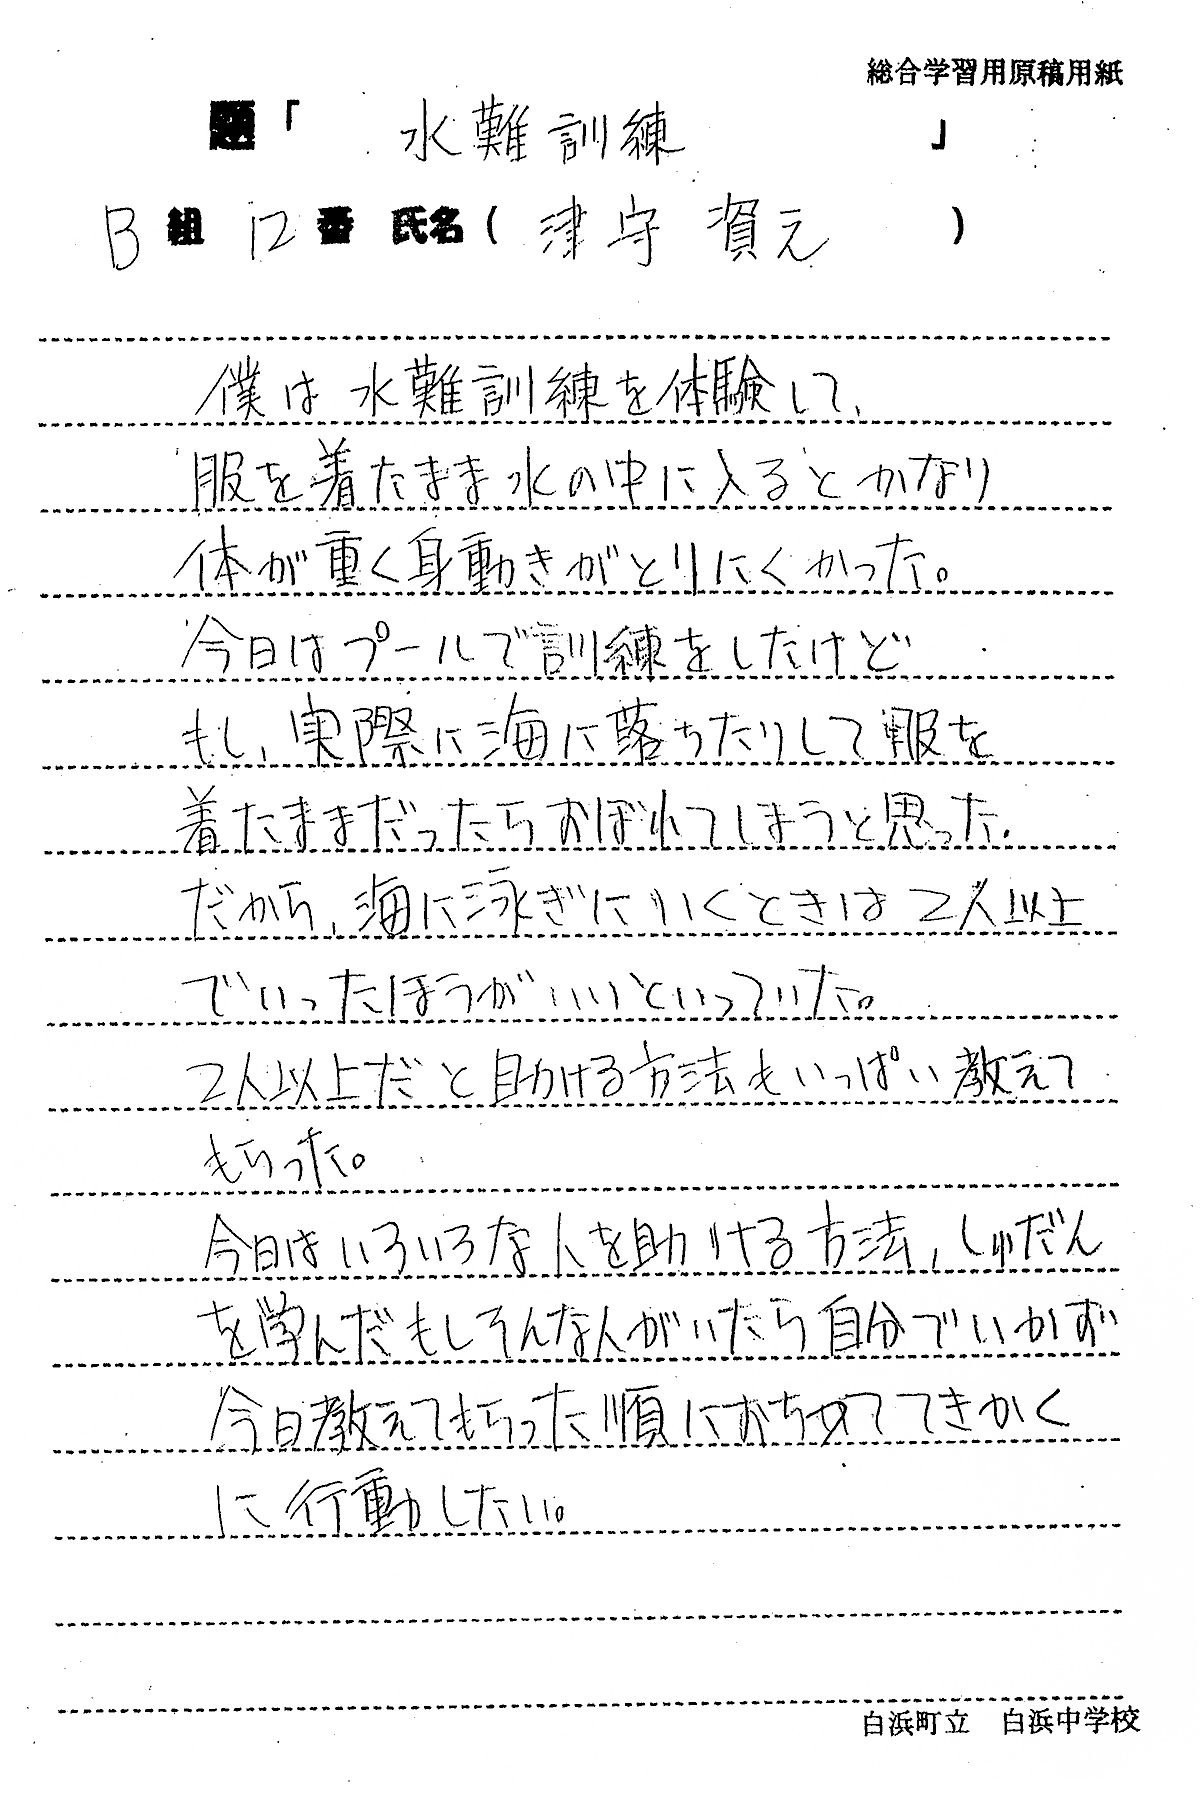 総合学習用原稿用紙
題「 水難訓練 」
B 組 12 番 氏名( 津守 資元 )
僕は水難訓練を体験して、
服を着たまま水の中に入るとかなり
体が重く身動きがとりにくかった。
今日はプールで訓練をしたけど
もし、実際に海に落ちたりして服を
着たままだったらおぼれてしまうと思った.
だから、海に泳ぎにいくときは2人以上
でいったほうがいいといっていた。
2人以上だと助ける方法もいっぱい教えて
もらった。
今日はいろいろな人を助ける方法,しゅだん
を学んだもしそんな人がいたら自分でいかず
今日教えてもらった順におちめててきかく
に行動したい。
白浜町立 白浜中学校